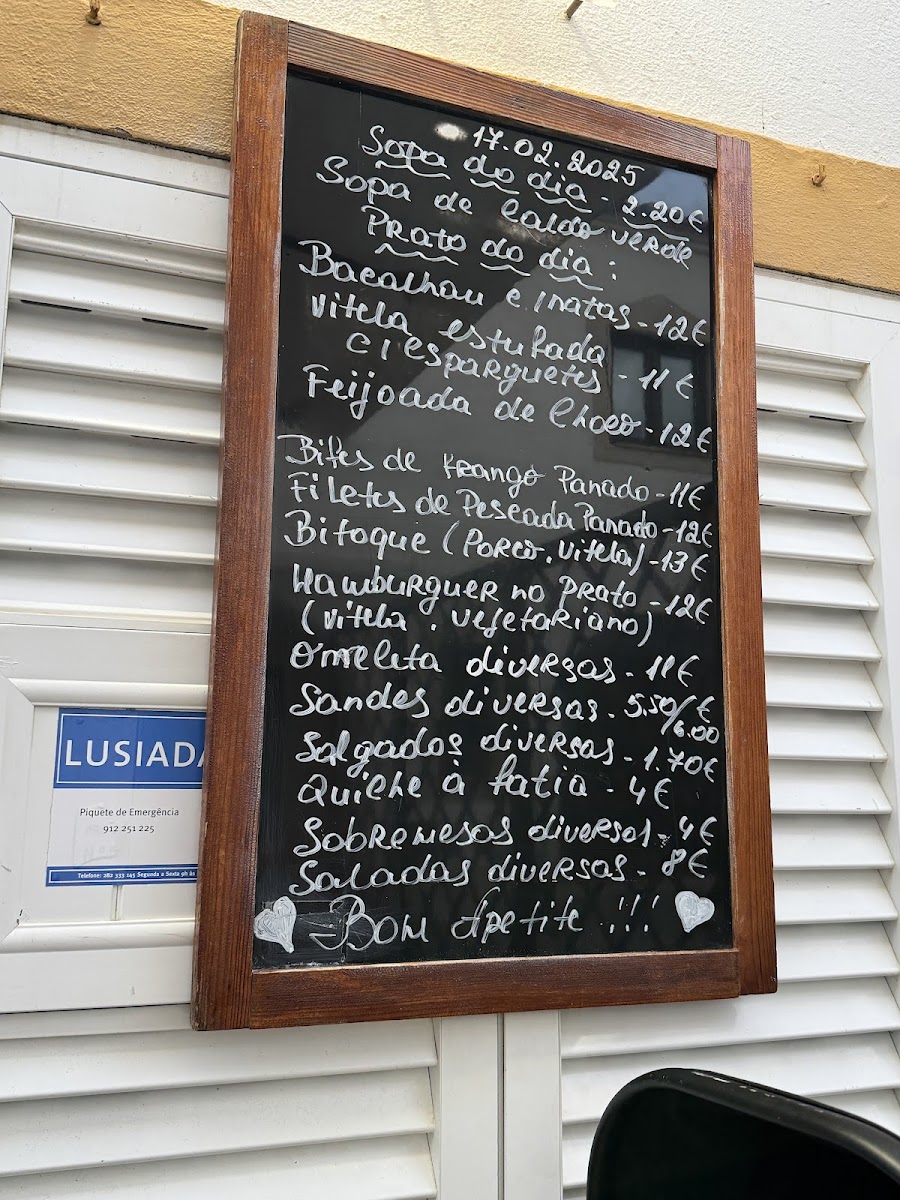 17.02.2025
Sopa do dia - 2.20€
Sopa de Caldo verde
Prato do dia:
Bacalhau c/natas - 12€
Vitela estufada
c/esparguetes - 11€
Feijoada de Choco - 12€
Bifes de Frango Panado - 11€
Filetes de Pescada Panado - 12€
Bitoque (Porco, vitela) - 13€
Hamburguer no Prato - 12€
(vitela, vegetariano)
Omeleta diversas - 11€
Sandes diversas - 5,50/€
6.00
Salgados diversas - 1.70€
Quiche à fatia - 4€
Sobremesas diversas - 4€
Saladas diversas - 8€
Bom Apetite !!!
LUSIADA
Piquete de Emergência
912 251 225
Telefone: 282 333 145 Segunda a Sexta 9h às